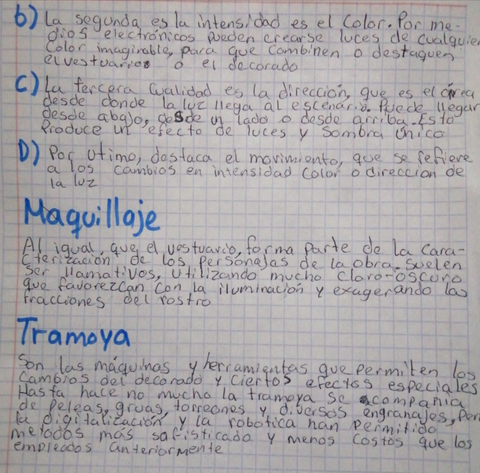 b) La segunda es la intensidad es el Color. Por me-
dios electrónicos pueden crearse luces de cualquier
Color imaginable, para que combinen o destaquen
el vestuario o el decorado
C) La tercera Cualidad es la dirección, que es el área
desde donde la luz llega al escenario. Puede llegar
desde abajo, desde un lado o desde arriba. Esto
Produce un efecto de luces y sombra único
D) Por útimo, destaca el movimiento, que se refiere
a los cambios en intensidad color o direccion de
la luz
Maquillaje
Al igual, que el vestuario, forma parte de la Cara-
cterización de los personajas de la obra. Suelen
ser llamativos, utilizando mucho claro-oscuro
que favorezcan con la iluminación y exagerando las
fracciones del rostro
Tramoya
Son las máquinas y herramientas que permiten los
Cambios del decorado y ciertos efectos especiales
Hasta hace no mucho la tramoya se compania
de peleas, gruas, torreones y diversos engranajes, pero
la digitalización y la robotica han permitido
metodos más sofisticado y menos costos que los
empleados anteriormente